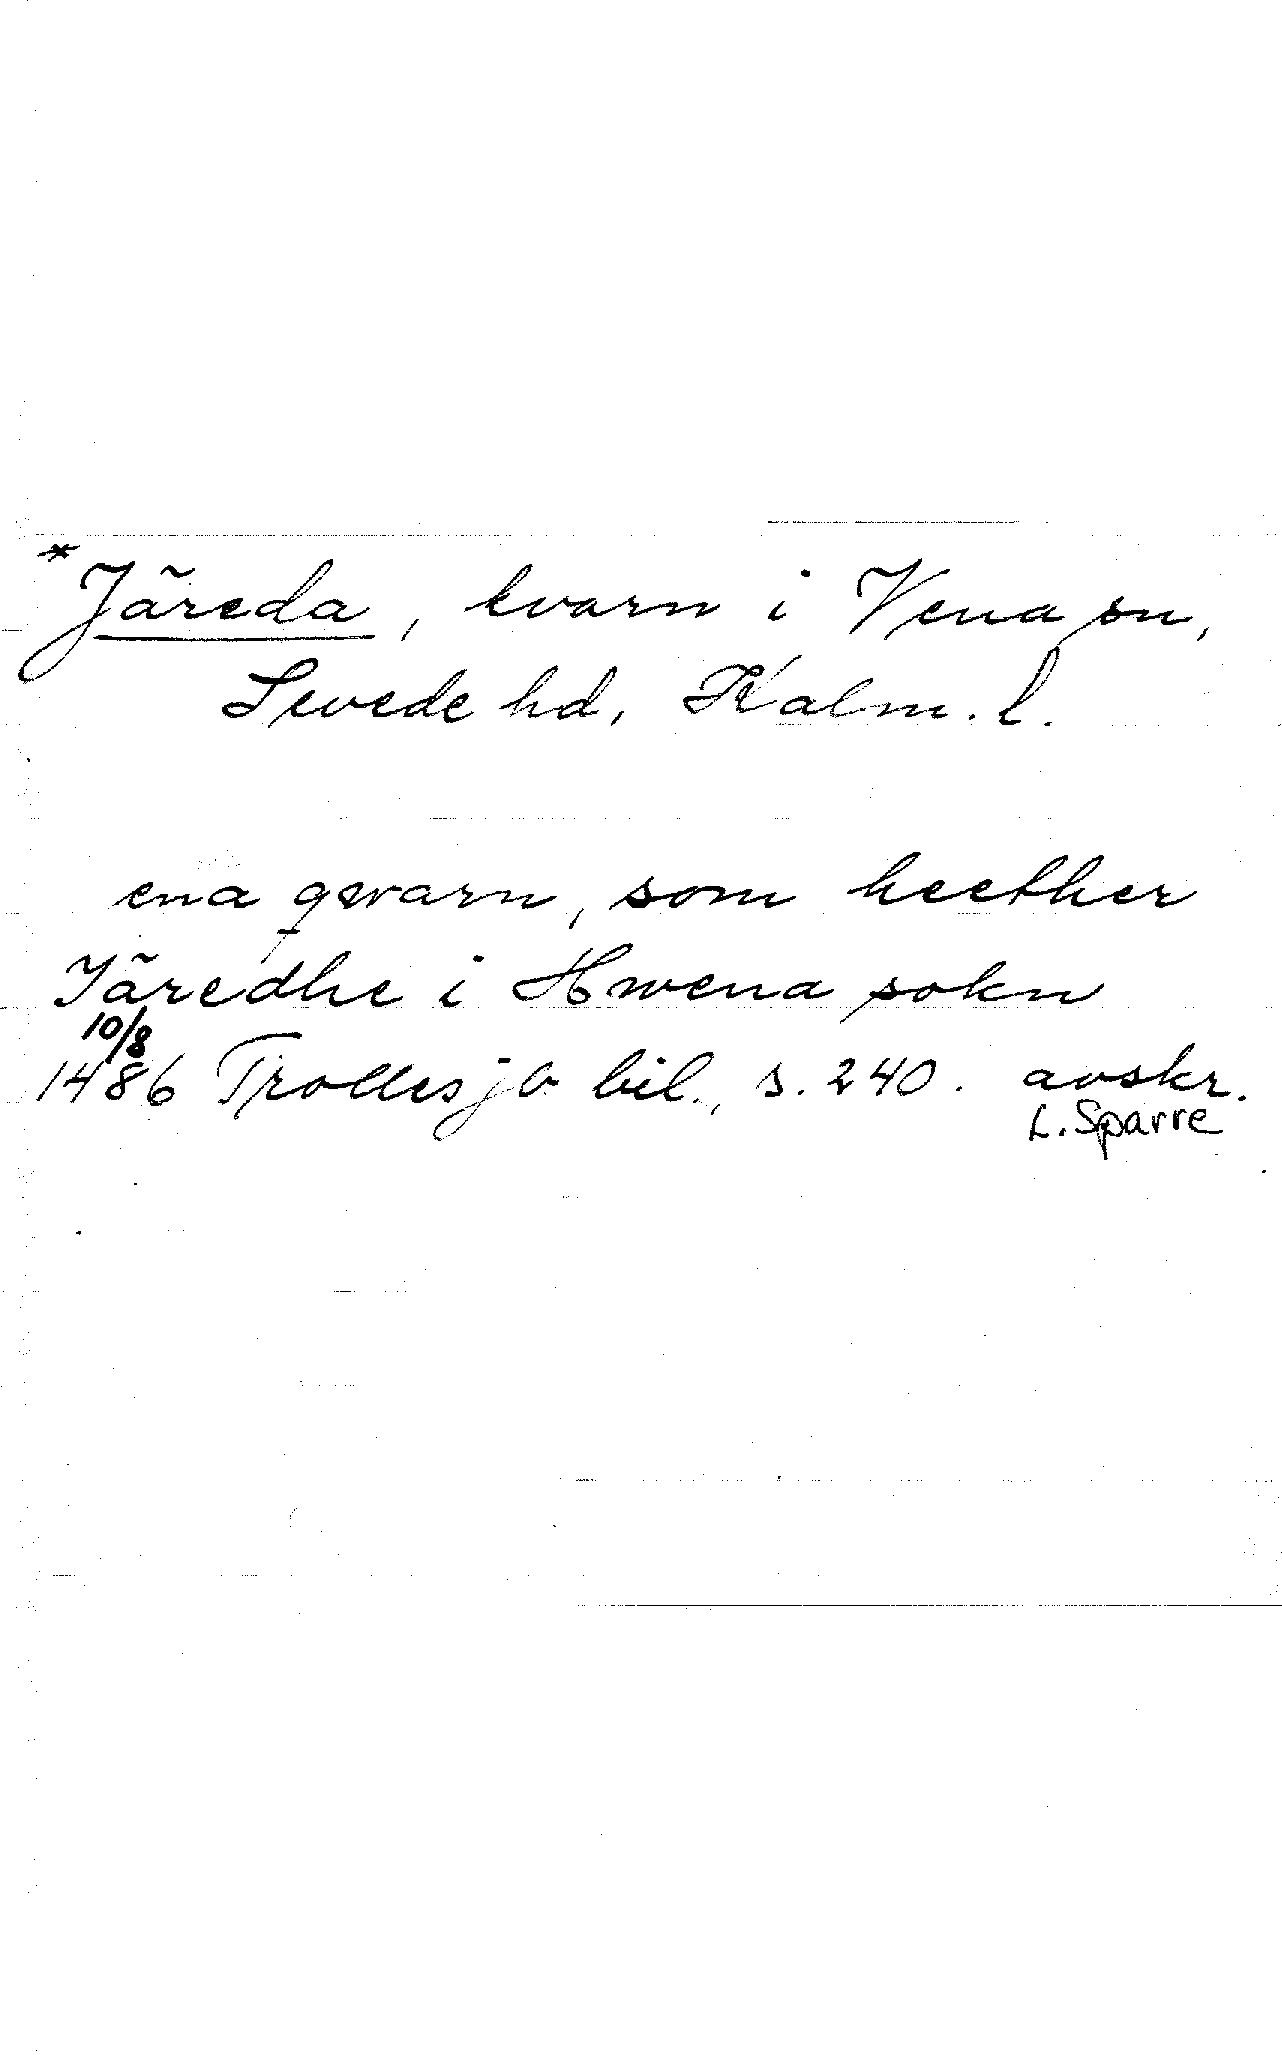 *Järeda, kvarn i Vena sn,
Sevede hd, Kalm. l.
ena qwarn, som heether
Järedhe i Hwena sokn
10/8
1486 Trolles jb bil., s. 240. avskr.
L. Sparre